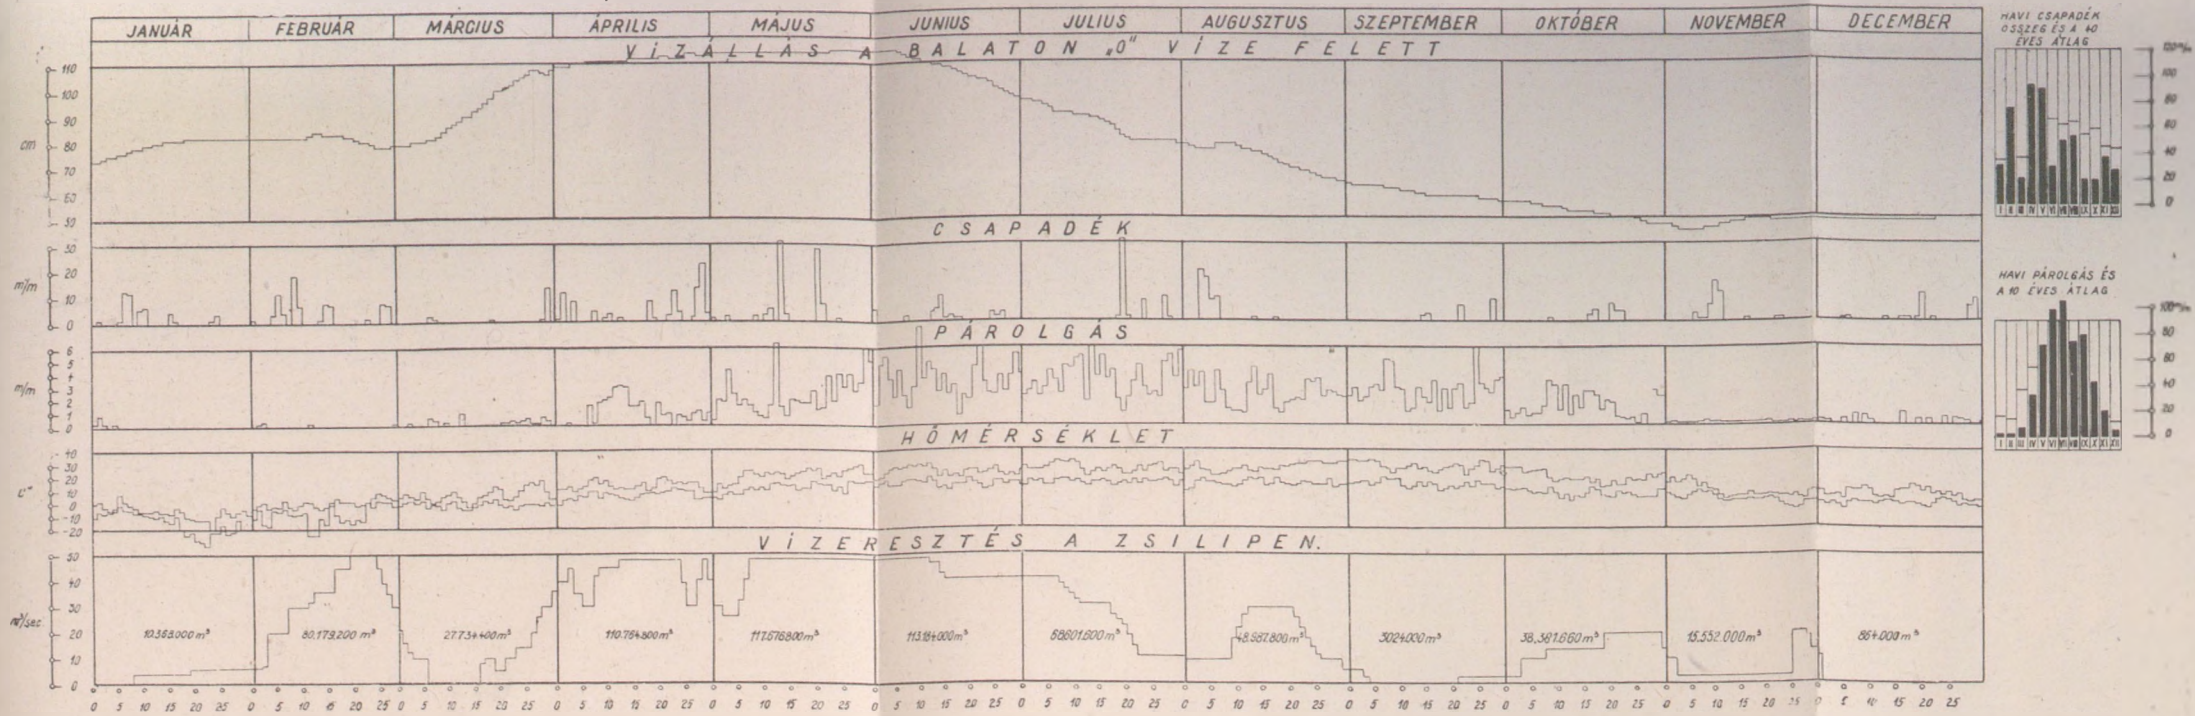 JANUÁR FEBRUÁR MÁRCIUS ÁPRILIS MÁJUS JUNIUS JULIUS AUGUSZTUS SZEPTEMBER OKTÓBER NOVEMBER DECEMBER
VÍZÁLLÁS A BALATON „0" VÍZE FELETT
110
100
90
cm 80
70
60
50
CSAPADÉK
30
m/m 20
10
0
PÁROLGÁS
6
5
4
m/m 3
2
1
0
HŐMÉRSÉKLET
40
30
20
C° 10
0
-10
-20
VÍZERESZTÉS A ZSILIPEN.
50
40
30
m³/sec 20
10
0
80,179.200 m³ 27.734.400 m³ 110.764.800 m³ 117.676800 m³ 113.184000 m³ 68.601.600 m³ 3024000 m³ 38,381.660 m³ 15.552.000 m³ 864.000 m³
0 5 10 15 20 25 0 5 10 15 20 25 0 5 10 15 20 25 0 5 10 15 20 25 0 5 10 15 20 25 0 5 10 15 20 25 0 5 10 15 20 25 0 5 10 15 20 25 0 5 10 15 20 25 0 5 10 15 20 25 0 5 10 15 20 25 0 5 10 15 20 25
HAVI CSAPADÉK
ÖSSZEG ÉS A 40
ÉVES ÁTLAG
100
80
60
40
20
0
I II III IV V VI VII VIII IX X XI XII
HAVI PÁROLGÁS ÉS
A 10 ÉVES ÁTLAG
100 m/m
80
60
40
20
0
I II III IV V VI VII VIII IX X XI XII